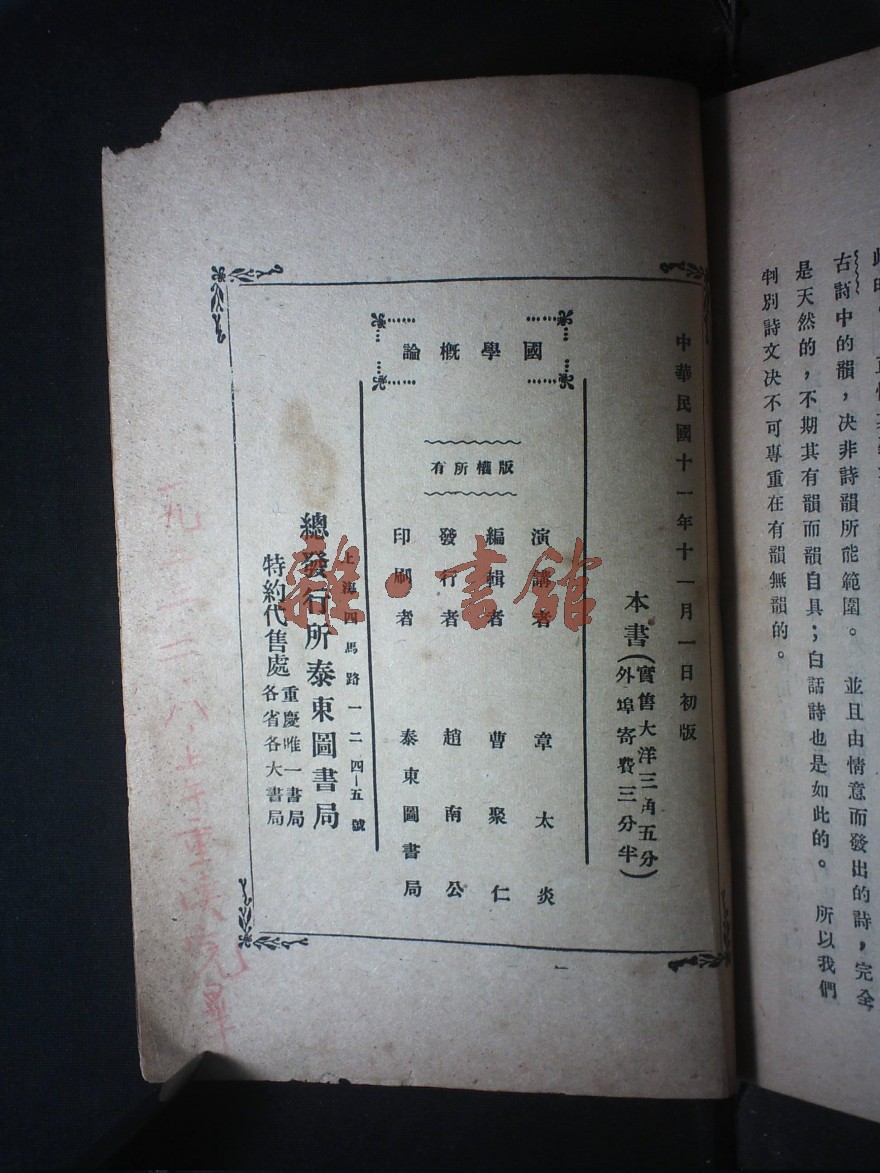 此時
古詩中的韻，決非詩韻所能範圍。並且由情意而發出的詩，完全
是天然的，不期其有韻而韻自具；白話詩也是如此的。所以我們
判別詩文決不可專重在有韻無韻的。
中華民國十一年十一月一日初版
本書(實售大洋三角五分
外埠寄費三分半)
國學概論
版權所有
演講者 章太炎
編輯者 曹聚仁
發行者 趙南公
印刷者 泰東圖書局
上海四馬路一二四—五號
總發行所泰東圖書局
特約代售處 重慶唯一書局
各省各大書局
雜·書館